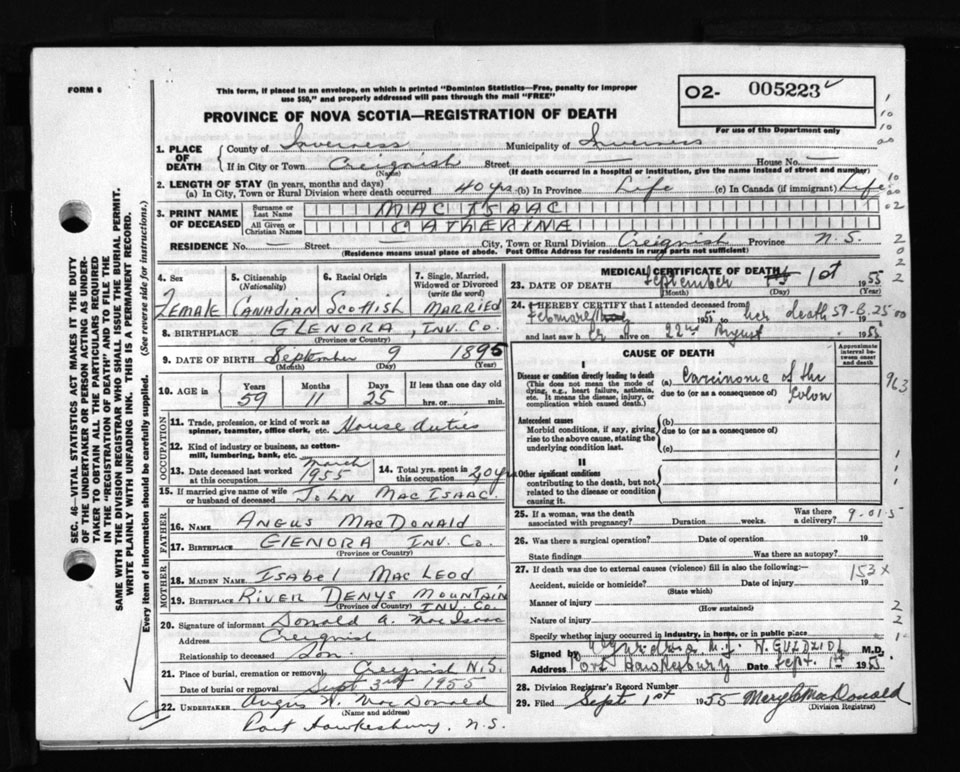 FORM 6
This form, if placed in an envelope, on which is printed "Dominion Statistics—Free, penalty for improper
use $50," and properly addressed will pass through the mail "FREE"
O2- 005223
For use of the Department only
PROVINCE OF NOVA SCOTIA—REGISTRATION OF DEATH
1. PLACE OF DEATH
County of Inverness Municipality of Inverness
If in City or Town Creignish Street — House No. —
(Name) (If death occurred in a hospital or institution, give the name instead of street and number)
2. LENGTH OF STAY (in years, months and days)
(a) In City, Town or Rural Division where death occurred 40 yrs. (b) In Province Life (c) In Canada (if immigrant) Life
3. PRINT NAME OF DECEASED
Surname or Last Name MAC ISAAC
All Given or Christian Names CATHERINE
RESIDENCE No. — Street — City, Town or Rural Division Creignish Province N.S.
(Residence means usual place of abode. Post Office Address for residents in rural parts not sufficient)
4. Sex Female
5. Citizenship (Nationality) Canadian
6. Racial Origin Scottish
7. Single, Married, Widowed or Divorced (write the word) MARRIED
8. BIRTHPLACE GLENORA, INV. CO.
(Province or Country)
9. DATE OF BIRTH September 9 1895
(Month) (Day) (Year)
10. AGE in Years 59 Months 11 Days 25 If less than one day old hrs. or min.
OCCUPATION
11. Trade, profession, or kind of work as spinner, teamster, office clerk, etc. House duties
12. Kind of industry or business, as cotton-mill, lumbering, bank, etc.
13. Date deceased last worked at this occupation March 1955
14. Total yrs. spent in this occupation 20 yrs
15. If married give name of wife or husband of deceased JOHN MAC ISAAC.
FATHER
16. NAME ANGUS MACDONALD
17. BIRTHPLACE GLENORA INV. CO.
(Province or Country)
MOTHER
18. MAIDEN NAME ISABEL MACLEOD
19. BIRTHPLACE RIVER DENYS MOUNTAIN INV. CO.
(Province or Country)
20. Signature of informant Donald A. MacIsaac
Address Creignish
Relationship to deceased Son.
21. Place of burial, cremation or removal Creignish N.S.
Date of burial or removal Sept 3rd 1955
22. UNDERTAKER Angus W. MacDonald
(Name and address)
Port Hawkesbury, N.S.
MEDICAL CERTIFICATE OF DEATH
23. DATE OF DEATH September 1st 1955
(Month) (Day) (Year)
24. I HEREBY CERTIFY that I attended deceased from
1955 to her death 19
and last saw h er alive on 22nd August 1955
CAUSE OF DEATH
Approximate interval between onset and death
I
Disease or condition directly leading to death
(This does not mean the mode of dying, e.g., heart failure, asthenia, etc. It means the disease, injury, or complication which caused death.)
(a) Carcinoma of the Colon
due to (or as a consequence of)
Antecedent causes
Morbid conditions, if any, giving rise to the above cause, stating the underlying condition last.
(b)
due to (or as a consequence of)
(c)
II
Other significant conditions
contributing to the death, but not related to the disease or condition causing it.
25. If a woman, was the death associated with pregnancy? Duration weeks. Was there a delivery?
9-01-5
26. Was there a surgical operation? Date of operation 19
State findings Was there an autopsy?
27. If death was due to external causes (violence) fill in also the following:—
153x
Accident, suicide or homicide? Date of injury 19
(State which)
Manner of injury
(How sustained)
Nature of injury
Specify whether injury occurred in industry, in home, or in public place
Signed by W. GUZDZIOL M.D.
Address Port Hawkesbury Date Sept. 1st 1955
28. Division Registrar's Record Number
29. Filed Sept 1st 1955 Mary C MacDonald
(Division Registrar)
963
SEC. 46—VITAL STATISTICS ACT MAKES IT THE DUTY
OF THE UNDERTAKER OR PERSON ACTING AS UNDER-
TAKER TO OBTAIN ALL THE PARTICULARS REQUIRED
IN THE "REGISTRATION OF DEATH" AND TO FILE THE
SAME WITH THE DIVISION REGISTRAR WHO SHALL ISSUE THE BURIAL PERMIT.
WRITE PLAINLY WITH UNFADING INK. THIS IS A PERMANENT RECORD.
Every item of information should be carefully supplied. (See reverse side for instructions.)